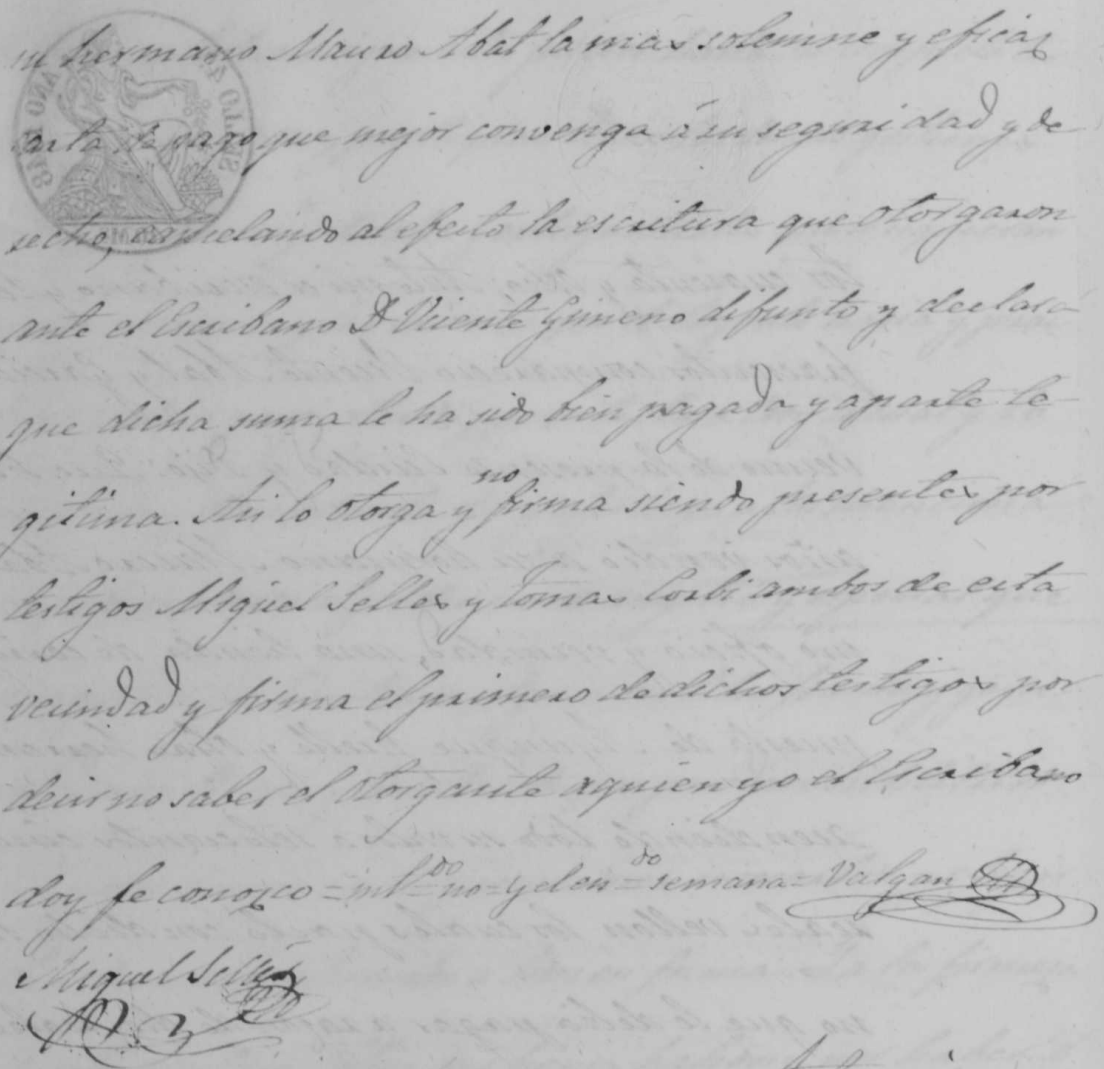 su hermano Mauro Abat la mas solemne y eficaz
carta de pago que mejor convenga á su seguridad y de
recho, cancelando al efecto la escritura que otorgaron
ante el Escribano D. Vicente Gimeno difunto y declara
que dicha suma le ha sido bien pagada y aparte le
gitima. Asi lo otorga y no firma siendo presentes por
testigos Miguel Selles y Tomas Corbi ambos de esta
vecindad y firma el primero de dichos testigos por
decir no saber el otorgante aquien yo el Escribano
doy fe conozco = intdo = no = y el endo = semana = Valgan
Miguel Selles